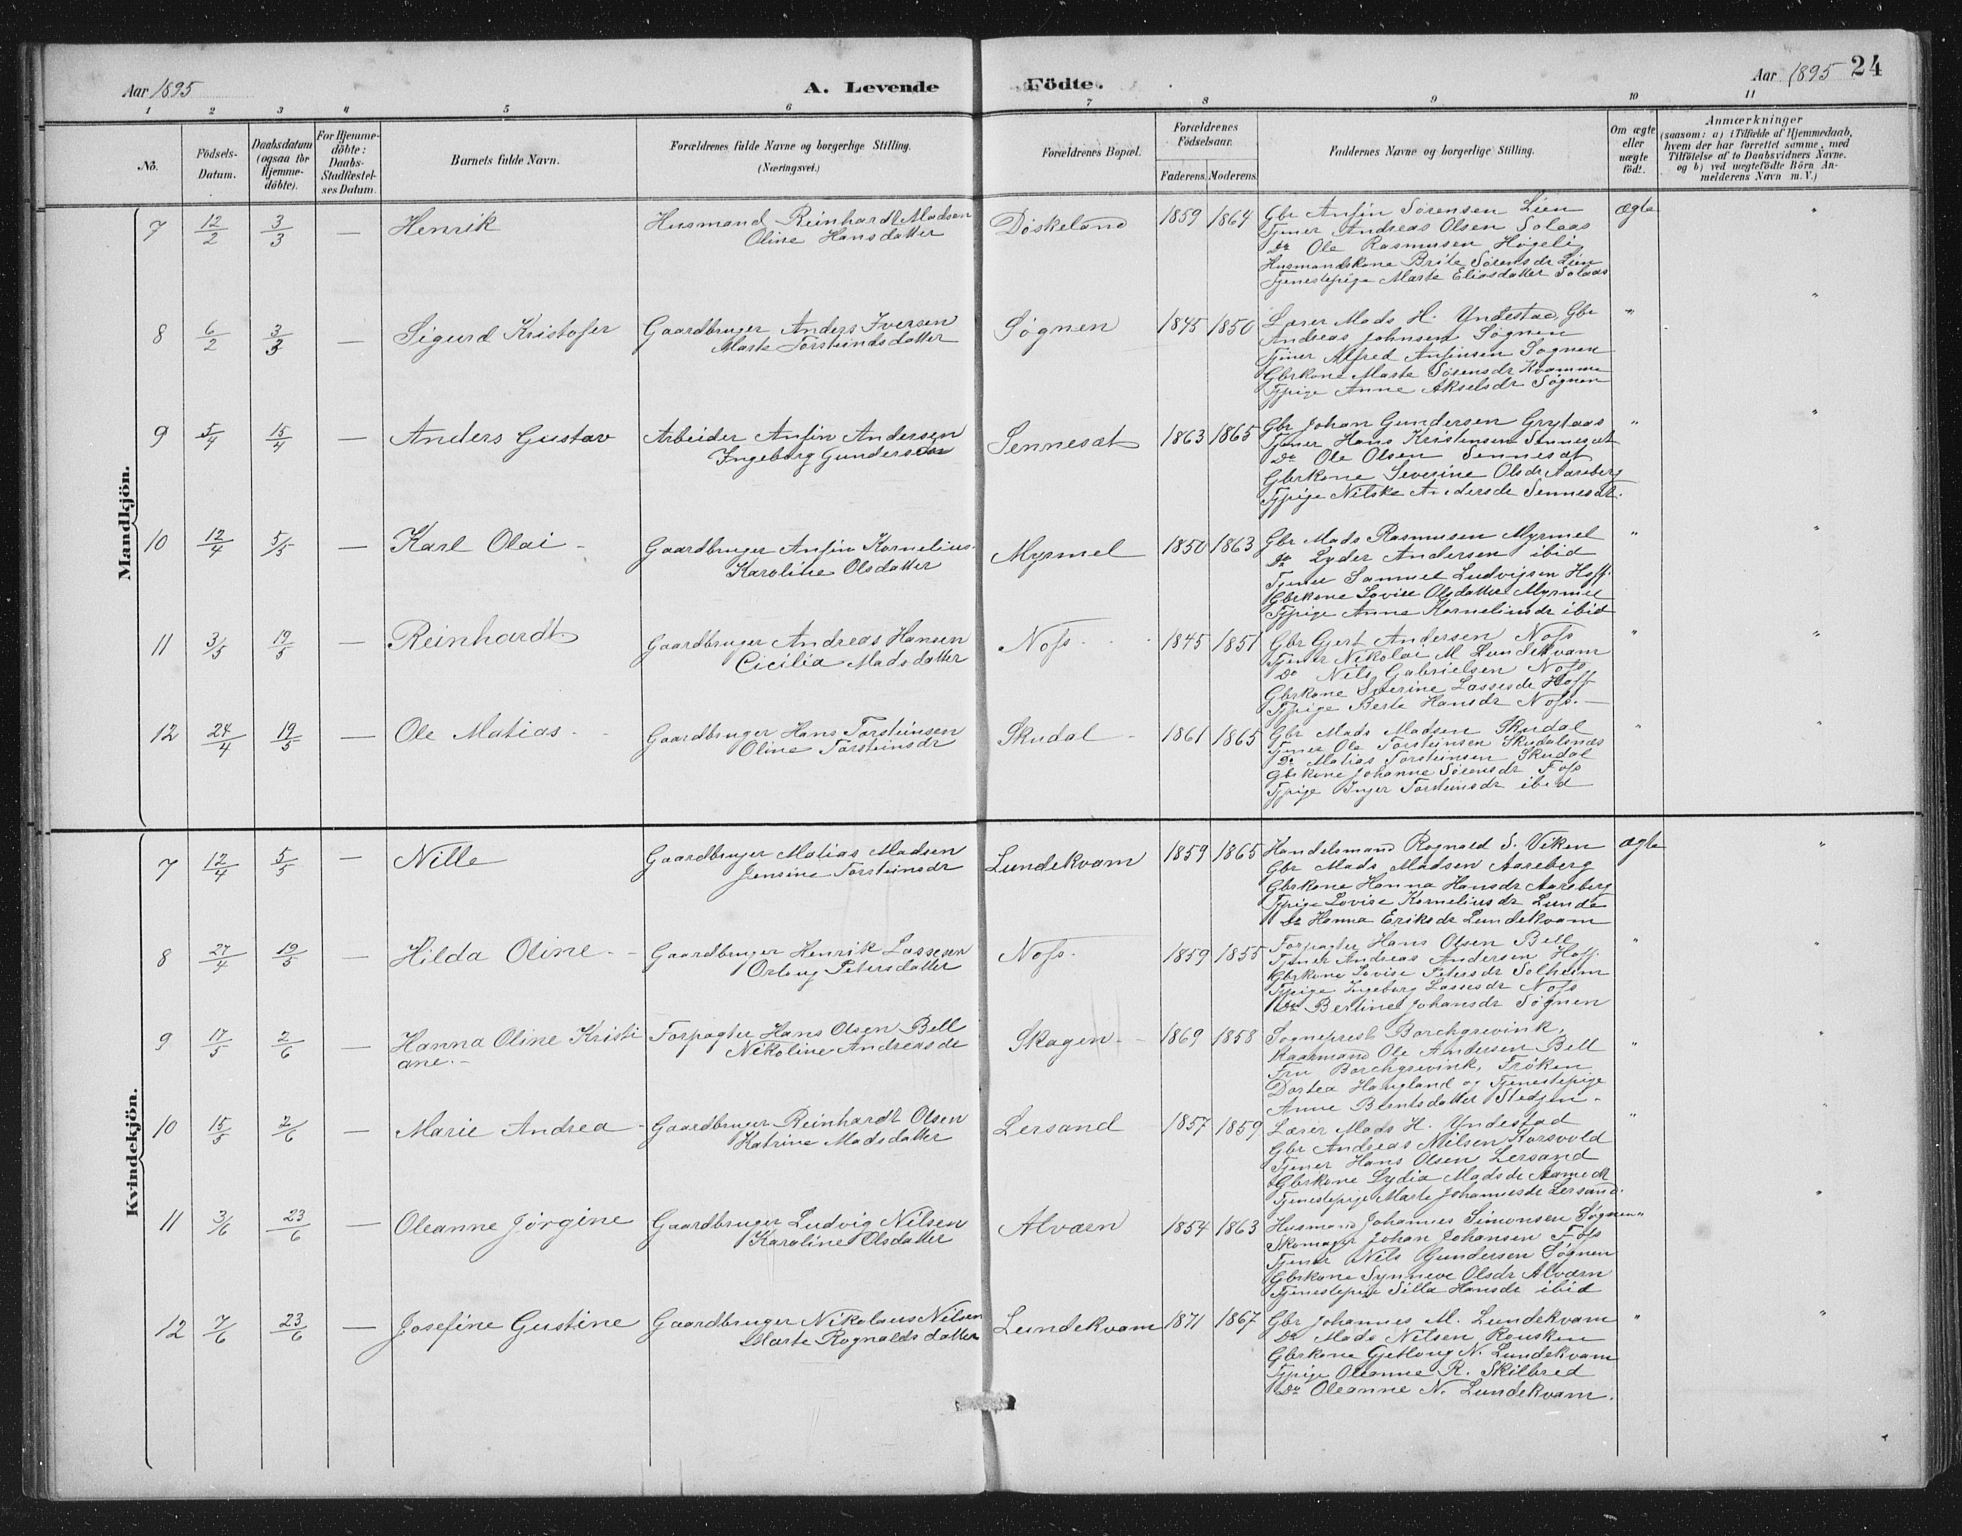 Aar 1895
A. Levende Födte.
Aar 1895 24
1 2 3 4 5 6 7 8 9 10 11
No.
Födsels-Datum.
Daabsdatum (ogsaa for Hjemme-döbte).
For Hjemme-döbte: Daabs-Stadfæstel-ses Datum.
Barnets fulde Navn.
Forældrenes fulde Navne og borgerlige Stilling.
(Næringsvei.)
Forældrenes Bopæl.
Forældrenes Födselsaar.
Faderens. Moderens.
Faddernes Navne og borgerlige Stilling.
Om ægte eller uægte födt.
Anmærkninger
(saasom: a) i Tilfælde af Hjemmedaab,
hvem der har forrettet samme, med
Tilföielse af to Daabsvidners Navne.
og b) ved uegtefödte Börn An-
melderens Navn m. V.)
Mandkjön.
7 12/2 3/3 — Henrik
Husmand Reinhardt Madsen
Oline Hansdatter
Döskeland 1859 1864
Gbr Anfin Sørensen Lien
Tjener Andreas Olsen Solaas
Do Ole Rasmusen Høgeli
Husmandskone Brite Sørensdr Lien
Tjenestepige Marte Eliasdatter Solaas
ægte "
8 6/2 3/3 — Sigurd Kristofer
Gaardbruger Anders Iversen
Marte Torsteindsdatter
Søgnen 1845 1850
Lærer Mads H. Undestad, Gbr
Andreas Johnsen Søgnen
Tjener Alfred Anfinsen Søgnen
Gbrkone Marte Sørensdr Kvamme
Tjpige Anne Akselsdr Søgnen
" "
9 5/4 15/4 — Anders Gustav
Arbeider Anfin Andersen
Ingeborg Gundersdr
Sennesæt 1863 1865
Gbr Johan Gundersen Grytaas
Tjener Hans Kristensen Sennesæt
Do Ole Olsen Sennesæt
Gbrkone Severine Olsdr Aareberg
Tjpige Nilske Andersdr Sennesæt.
" "
10 12/4 5/5 — Karl Olai
Gaardbruger Anfin Kornelius.
Karoline Olsdatter
Myrmel 1850 1863
Gbr Mads Rasmusen Myrmel
Do Lyder Andersen ibid
Tjener Samuel Ludvigsen Hoff.
Gbrkone Lovise Olsdatter Myrmel
Tjpige Anne Korneliusdr ibid
" "
11 3/5 19/5 — Reinhardt
Gaardbruger Andreas Hansen
Cicilia Madsdatter
Nofs 1845 1851
Gbr Gjert Andersen Nofs
Tjener Nikolai M. Lundekvam
Do Nils Gabrielsen Nofs
Gbrkone Severine Lassesdr Hoff
Tjpige Berte Hansdr Nofs. —
" "
12 24/4 19/5 — Ole Matias
Gaardbruger Hans Torsteinsen
Oline Torsteinsdr
Skudal 1861 1865
Gbr Mads Madsen Skudal
Tjener Ole Torsteinsen Skudalsnæs
Do Matias Torsteinsen Skudal
Gbrkone Johanne Sørensdr Fofs
Tjpige Inger Torsteinsdr ibid
" "
Kvindekjön.
7 12/4 5/5 — Nille
Gaardbruger Matias Madsen
Jensine Torsteinsdr
Lundekvam 1859 1865
Handelsmand Rognald S. Viken
Gbr Mads Madsen Aareberg
Gbrkone Hanna Hansdr Aareberg
Tjpige Lovise Korneliusdr Lunde
Do Hanna Eriksdr Lundekvam
ægte "
8 27/4 19/5 — Hilda Oline
Gaardbruger Henrik Lassesen
Orlaug Petersdatter
Nofs. 1859 1855
Forpagter Hans Olsen Bell
Tjener Andreas Andersen Hoff.
Gbrkone Lovise Petersdr Solheim
Tjpige Ingeborg Lassesdr Nofs
Do Bertine Johansdr Søgnen
" "
9 17/5 2/6 — Hanna Oline Kristi
ane. —
Forpagter Hans Olsen Bell
Nikoline Andreasdr
Skogen 1869 1858
Sogneprest Borchgrevink,
Kaarmand Ole Andersen Bell
Fru Borchgrevink, Frøken
Dortea Haugland og Tjenestepige
Anne Berntsdatter Stedjen. —
" "
10 15/5 2/6 — Marie Andrea
Gaardbruger Reinhardt Olsen
Katrine Madsdatter
Lersand 1857 1859
Lærer Mads H. Undestad
Gbr Andreas Nilsen Korsvold
Tjener Hans Olsen Lersand
Gbrkone Lydia Madsdr
Tjenestepige Marte Johannesdr Lersand.
" "
11 3/6 23/6 — Oleanne Jørgine
Gaardbruger Ludvig Nilsen
Karoline Olsdatter
Alværn 1854 1863
Husmand Johannes Simonsen Søgnen
Skomager Johan Johansen Fofs
Tjener Nils Gundersen Søgnen
Gbrkone Synneve Olsdr Alværn
Tjenestepige Silla Hansdr ibid
" "
12 7/6 23/6 — Josefine Gustine
Gaardbruger Nikolaus Nilsen
Marte Rognaldsdatter
Lundekvam 1871 1867
Gbr Johannes M. Lundekvam
Do Mads Nilsen Rousken
Gbrkone Gjetlaug N. Lundekvam
Tjpige Oleanne R. Skilbred
Do Oleanne N. Lundekvam.
" "